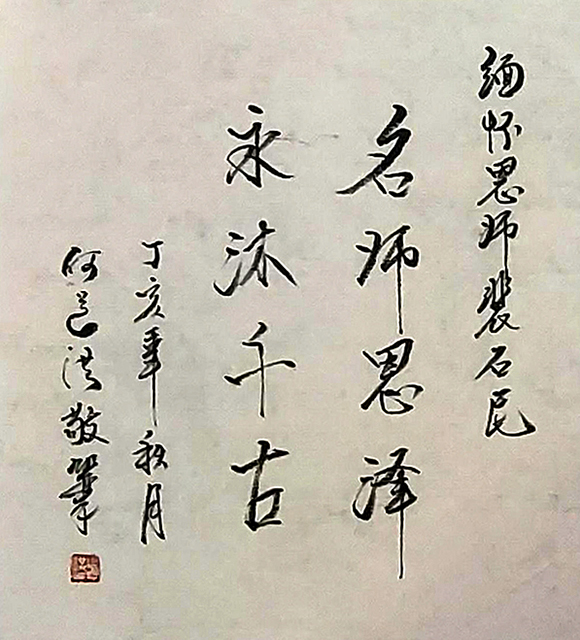 缅怀恩师裴石民
名师恩泽
永沐千古
丁亥年秋月
何道洪敬筆